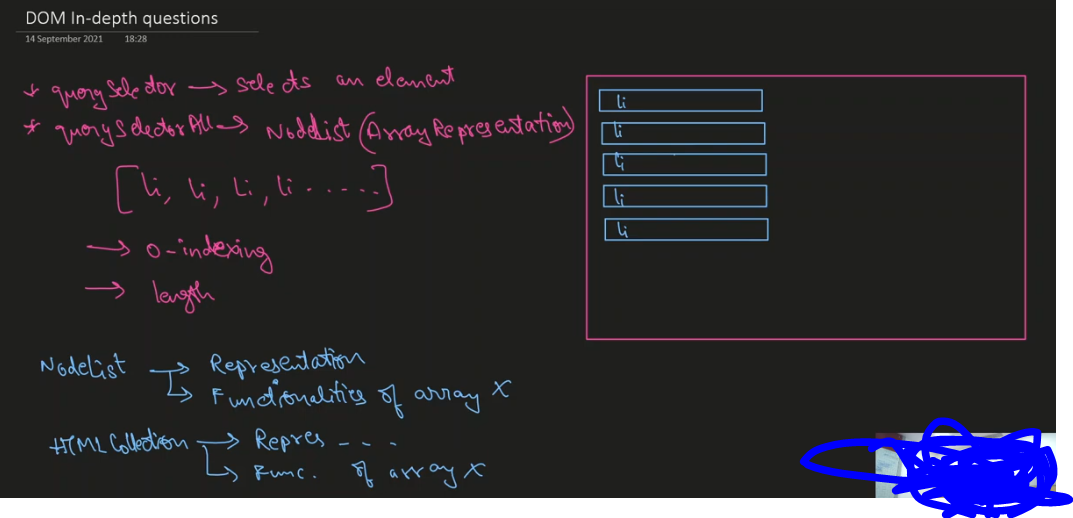 DOM In-depth questions
14 September 2021 18:28
* querySelector → selects an element
* querySelectorAll → NodeList (ArrayRepresentation)
[li, li, li, li ......]
→ 0-indexing
→ length
li
li
li
li
li
NodeList → Representation
↳ Functionalities of array X
HTMLCollection → Repres - - -
↳ Func. of array X